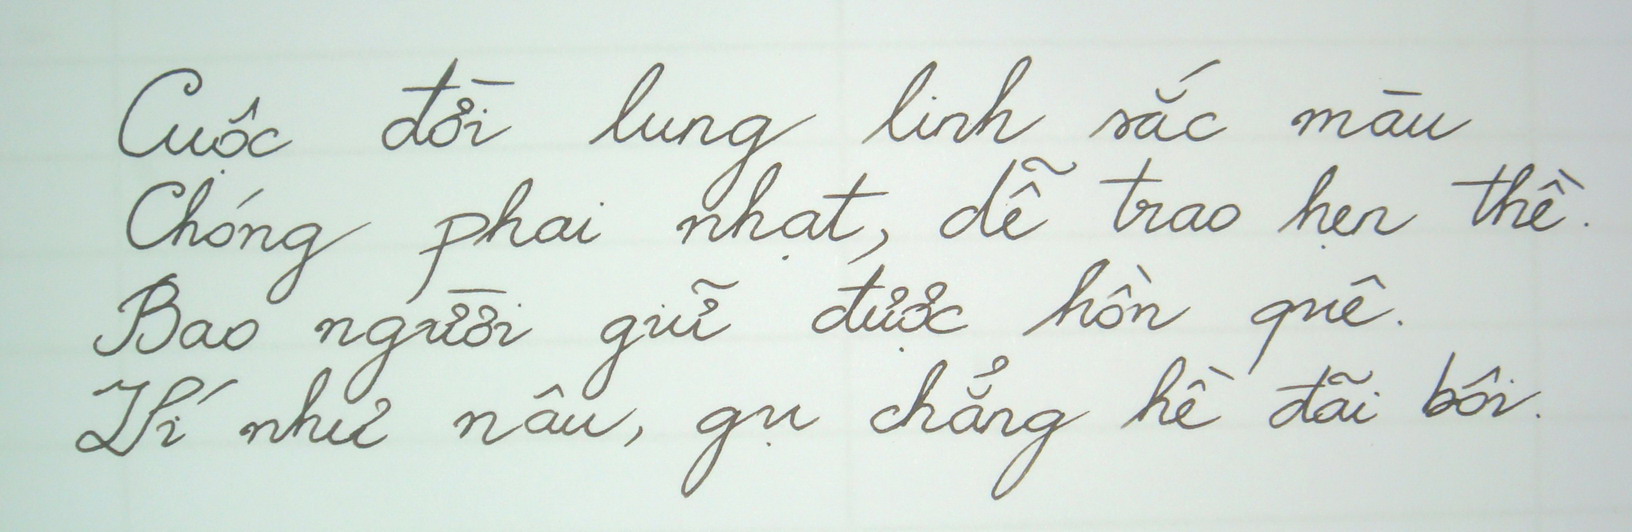 Cuộc đời lung linh sắc màu
Chóng phai nhạt, dễ trao hẹn thề.
Bao người giữ được hồn quê.
Ví như nâu, gụ chẳng hề đãi bôi.